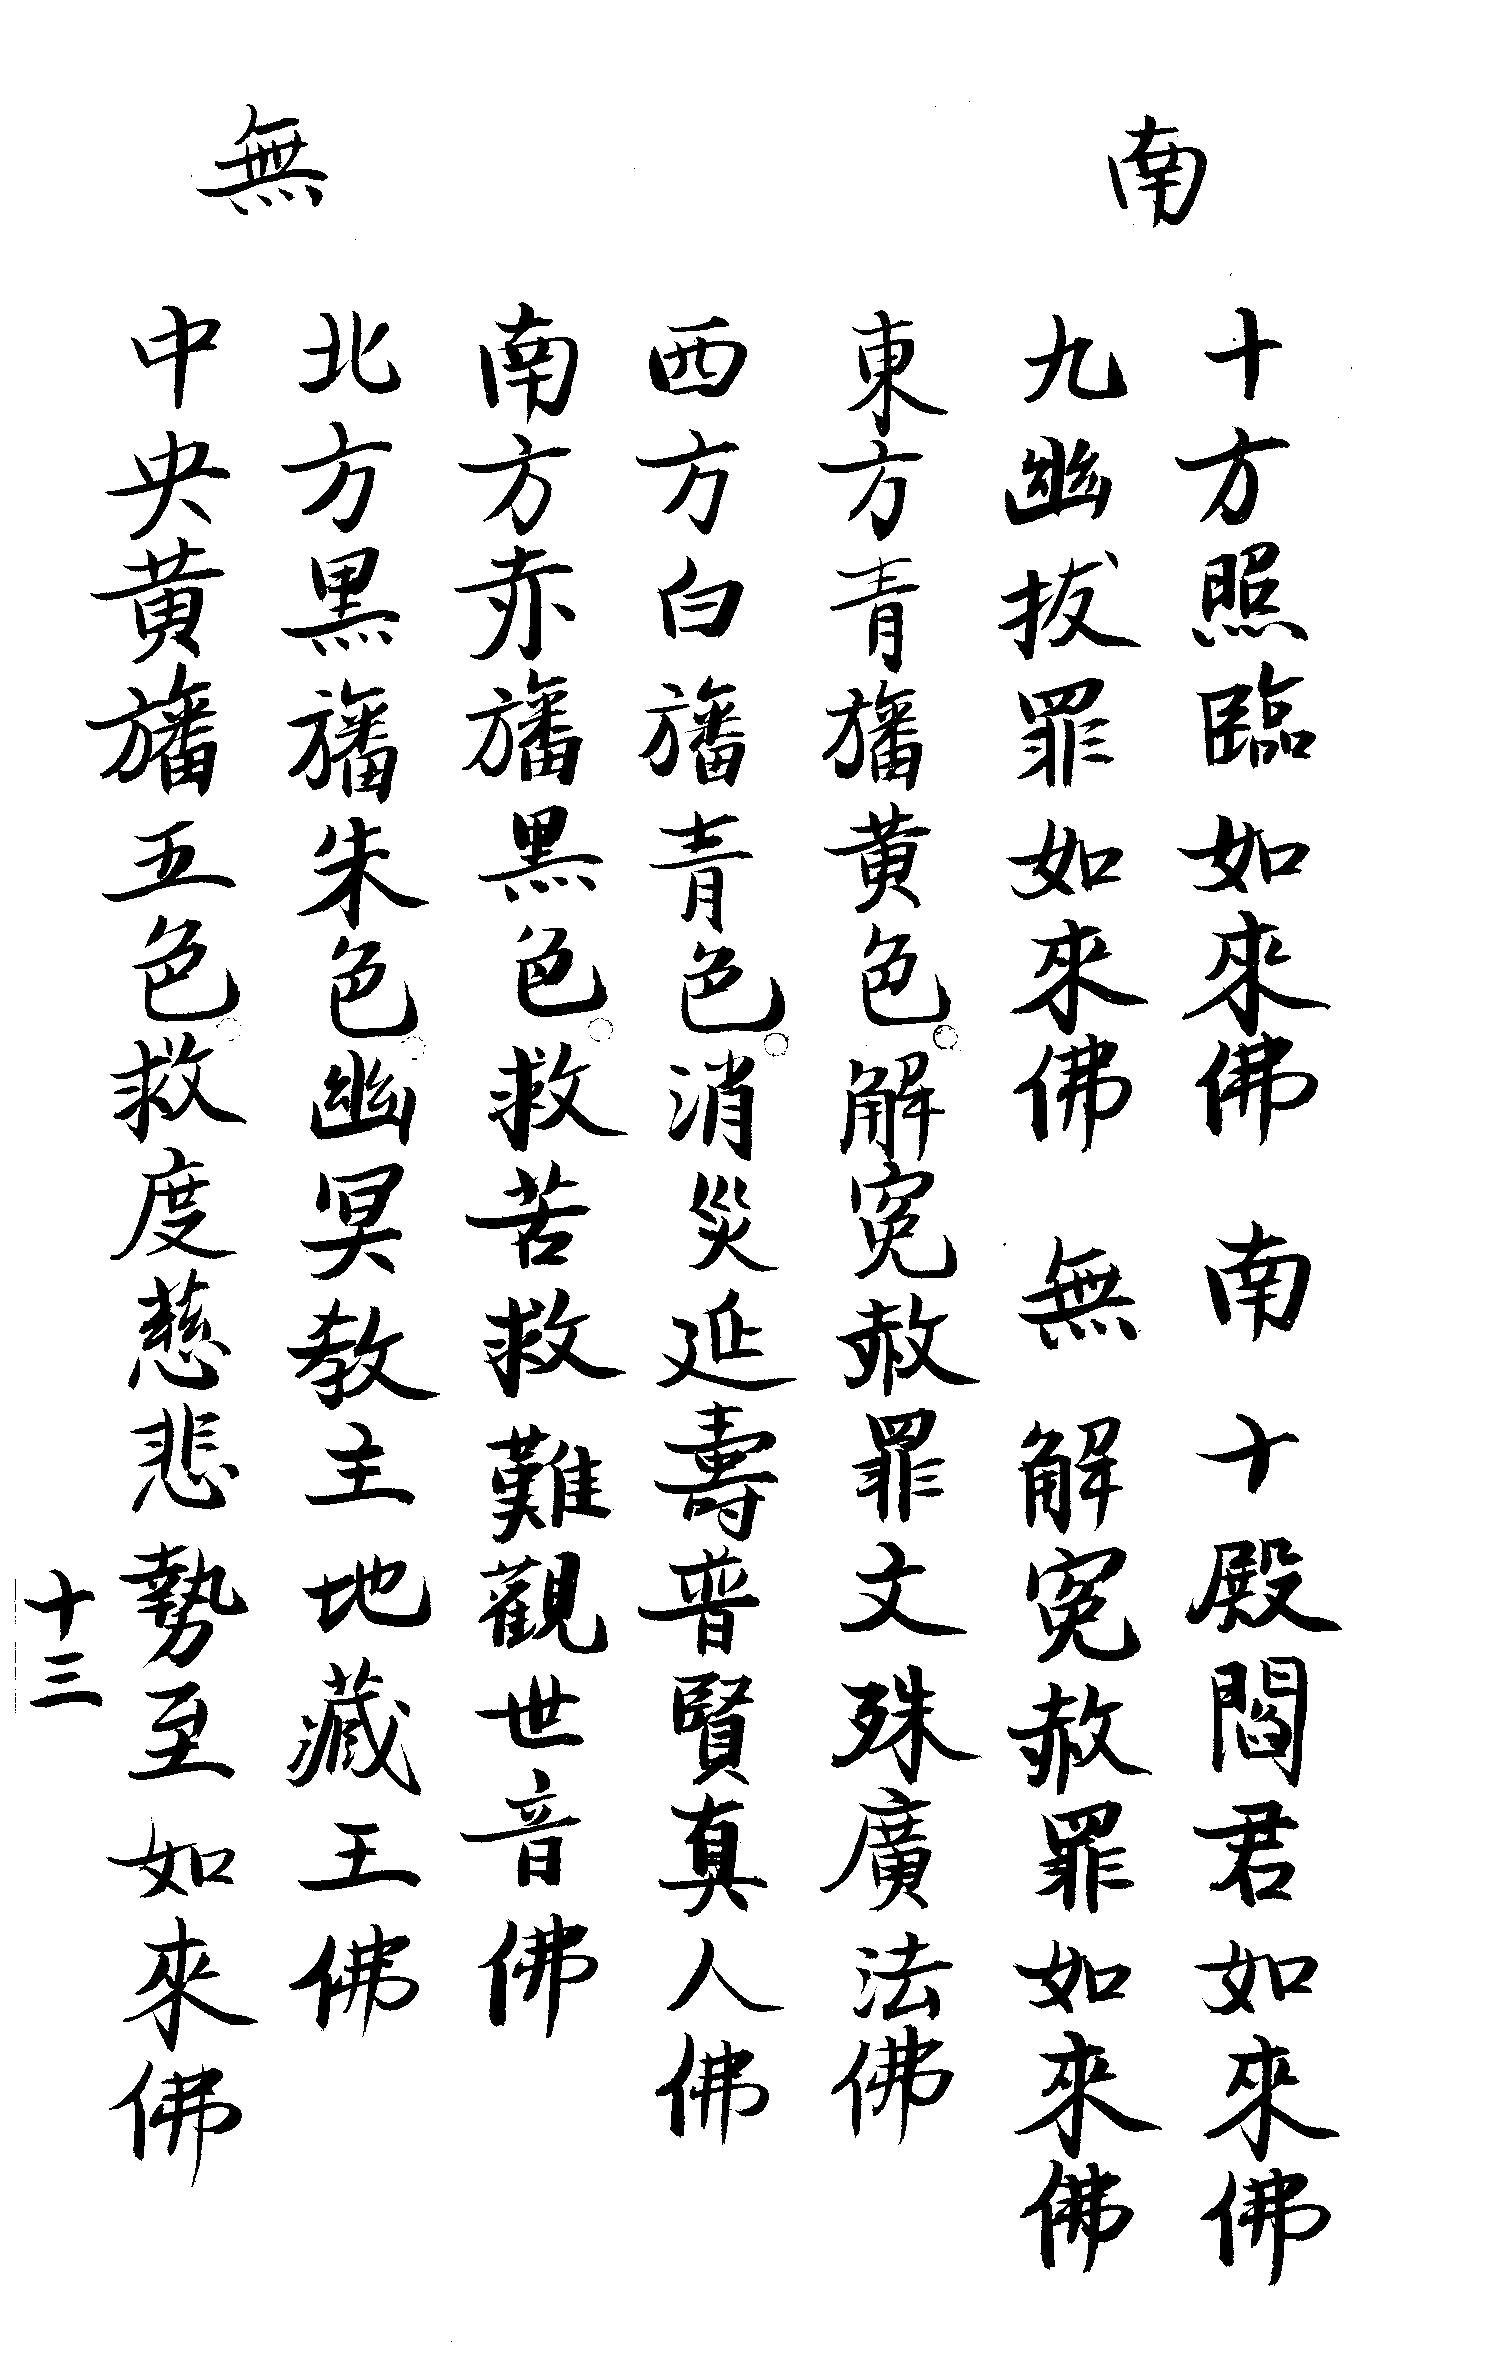 南
十方照臨如來佛 南 十殿閻君如來佛
九幽拔罪如來佛 無 解冤赦罪如來佛
東方青旛黃色。解冤赦罪文殊廣法佛
西方白旛青色。消災延壽普賢真人佛
南方赤旛黑色。救苦救難觀世音佛
北方黑旛朱色。幽冥教主地藏王佛
無
中央黃旛五色。救度慈悲勢至如來佛
十三